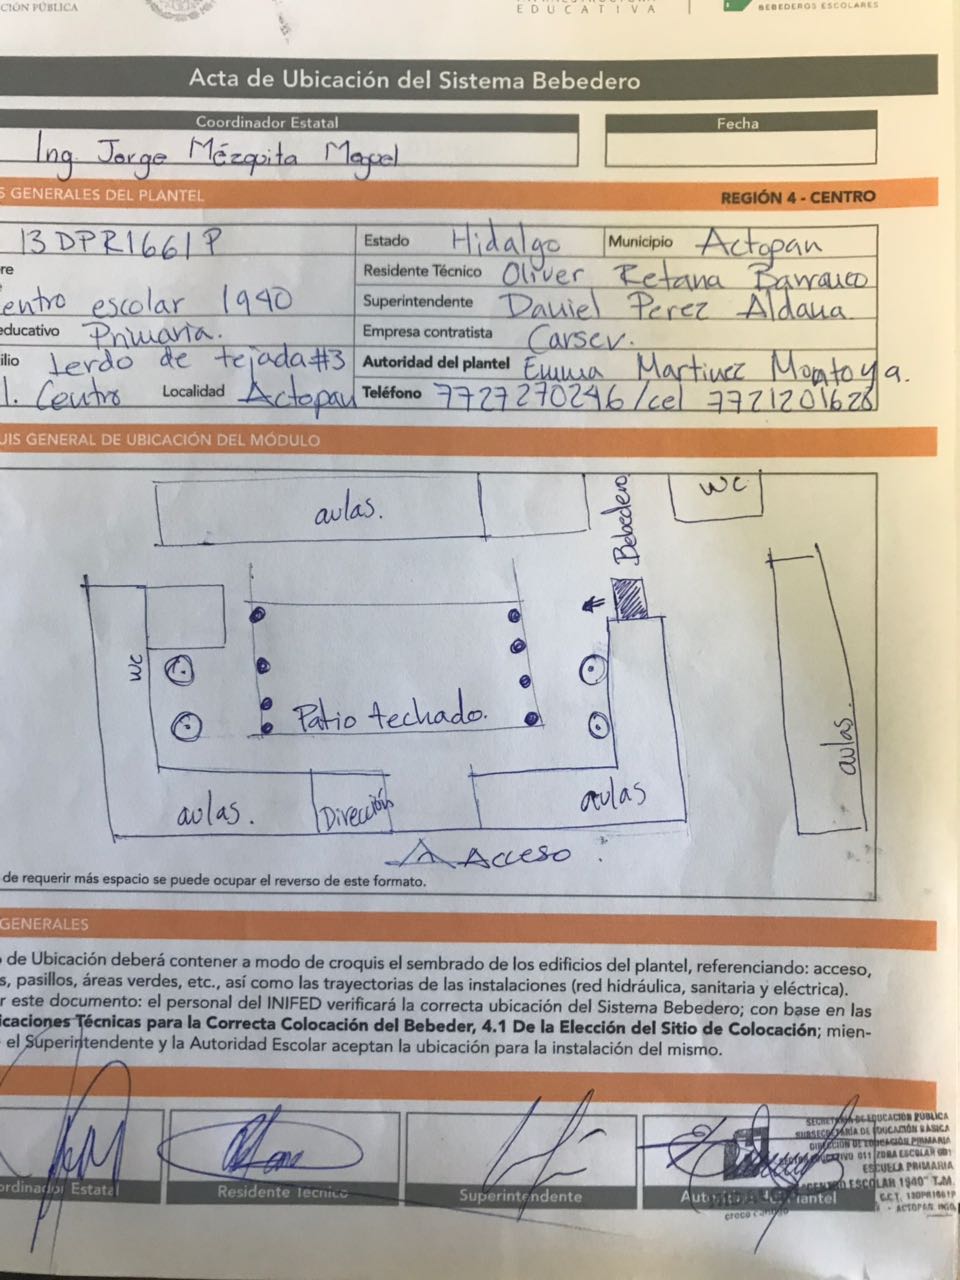 CIÓN PÚBLICA
EDUCATIVA
BEBEDEROS ESCOLARES
Acta de Ubicación del Sistema Bebedero
Coordinador Estatal
Fecha
Ing. Jorge Mézquita
REGIÓN 4 - CENTRO
S GENERALES DEL PLANTEL
13DPR1661P
Estado Hidalgo
Municipio Actopan
re
Residente Técnico Oliver Retana Barranco
entro escolar 1940
Superintendente Daniel Perez Aldana
educativo Primaria.
Empresa contratista Carsev.
ilio lerdo de tejada #3
Autoridad del plantel Emma Martinez Montoya.
l. Centro Localidad Actopan
Teléfono 7727270246/cel 7721201628
UIS GENERAL DE UBICACIÓN DEL MÓDULO
aulas.
Bebedero
WC
WC
Patio techado.
aulas.
aulas.
Dirección
aulas
Acceso
de requerir más espacio se puede ocupar el reverso de este formato.
GENERALES
o de Ubicación deberá contener a modo de croquis el sembrado de los edificios del plantel, referenciando: acceso,
s, pasillos, áreas verdes, etc., así como las trayectorias de las instalaciones (red hidráulica, sanitaria y eléctrica).
r este documento: el personal del INIFED verificará la correcta ubicación del Sistema Bebedero; con base en las
icaciones Técnicas para la Correcta Colocación del Bebeder, 4.1 De la Elección del Sitio de Colocación; mien-
el Superintendente y la Autoridad Escolar aceptan la ubicación para la instalación del mismo.
SECRETARÍA DE EDUCACIÓN PÚBLICA
SUBSECRETARÍA DE EDUCACIÓN BÁSICA
DIRECCIÓN DE EDUCACIÓN PRIMARIA
SECTOR EDUCATIVO 011 ZONA ESCOLAR 001
ESCUELA PRIMARIA
"CENTRO ESCOLAR 1940" T.M.
C.C.T. 13DPR1661P
- ACTOPAN, HGO.
ordinador Estatal
Residente Técnico
Superintendente
Autoridad del Plantel